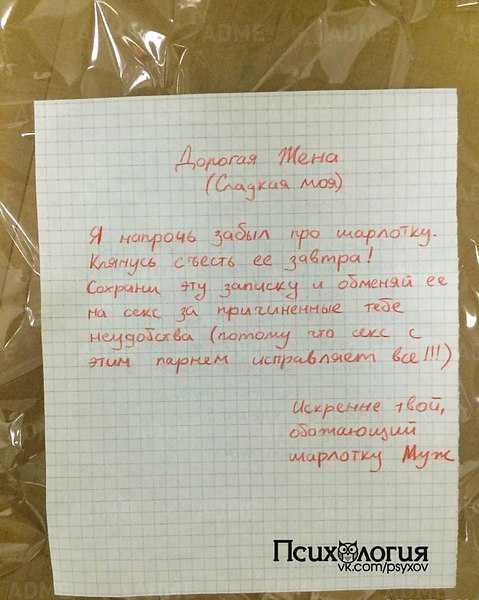 ADME
Дорогая Жена
(Сладкая моя)
Я напрочь забыл про шарлотку.
Клянусь съесть ее завтра!
Сохрани эту записку и обменяй ее
на секс за причиненные тебе
неудобства (потому что секс с
этим парнем исправляет все!!!)
Искренне твой,
обожающий
шарлотку Муж
Психология
vk.com/psyxov